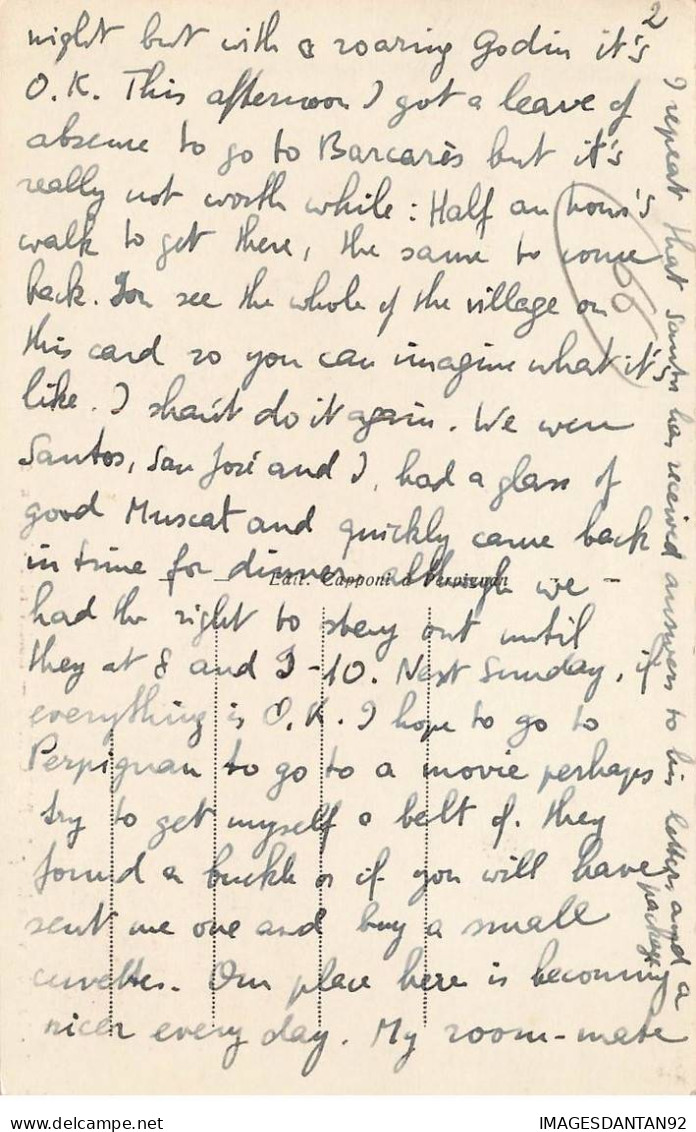 2
night but with a roaring Godin it's
O.K. This afternoon I got a leave of
absence to go to Barcarès but it's
really not worth while: Half an hour's
walk to get there, the same to come
back. You see the whole of the village on
this card so you can imagine what it's
like. I shan't do it again. We were
Santos, San José and I, had a glass of
good Muscat and quickly came back
in time for dinner although we
Edit. Capponi à Perpignan
had the right to stay out until
they at 8 and I - 10. Next Sunday, if
everything is O.K. I hope to go to
Perpignan to go to a movie perhaps
try to get myself a belt if they
found a buckle or if you will have
sent me one and buy a small
cuvettes. Our place here is becoming
nicer every day. My room-mate
I repeat that Santos has received answers to his letters and a
package
66
IMAGESDANTAN92